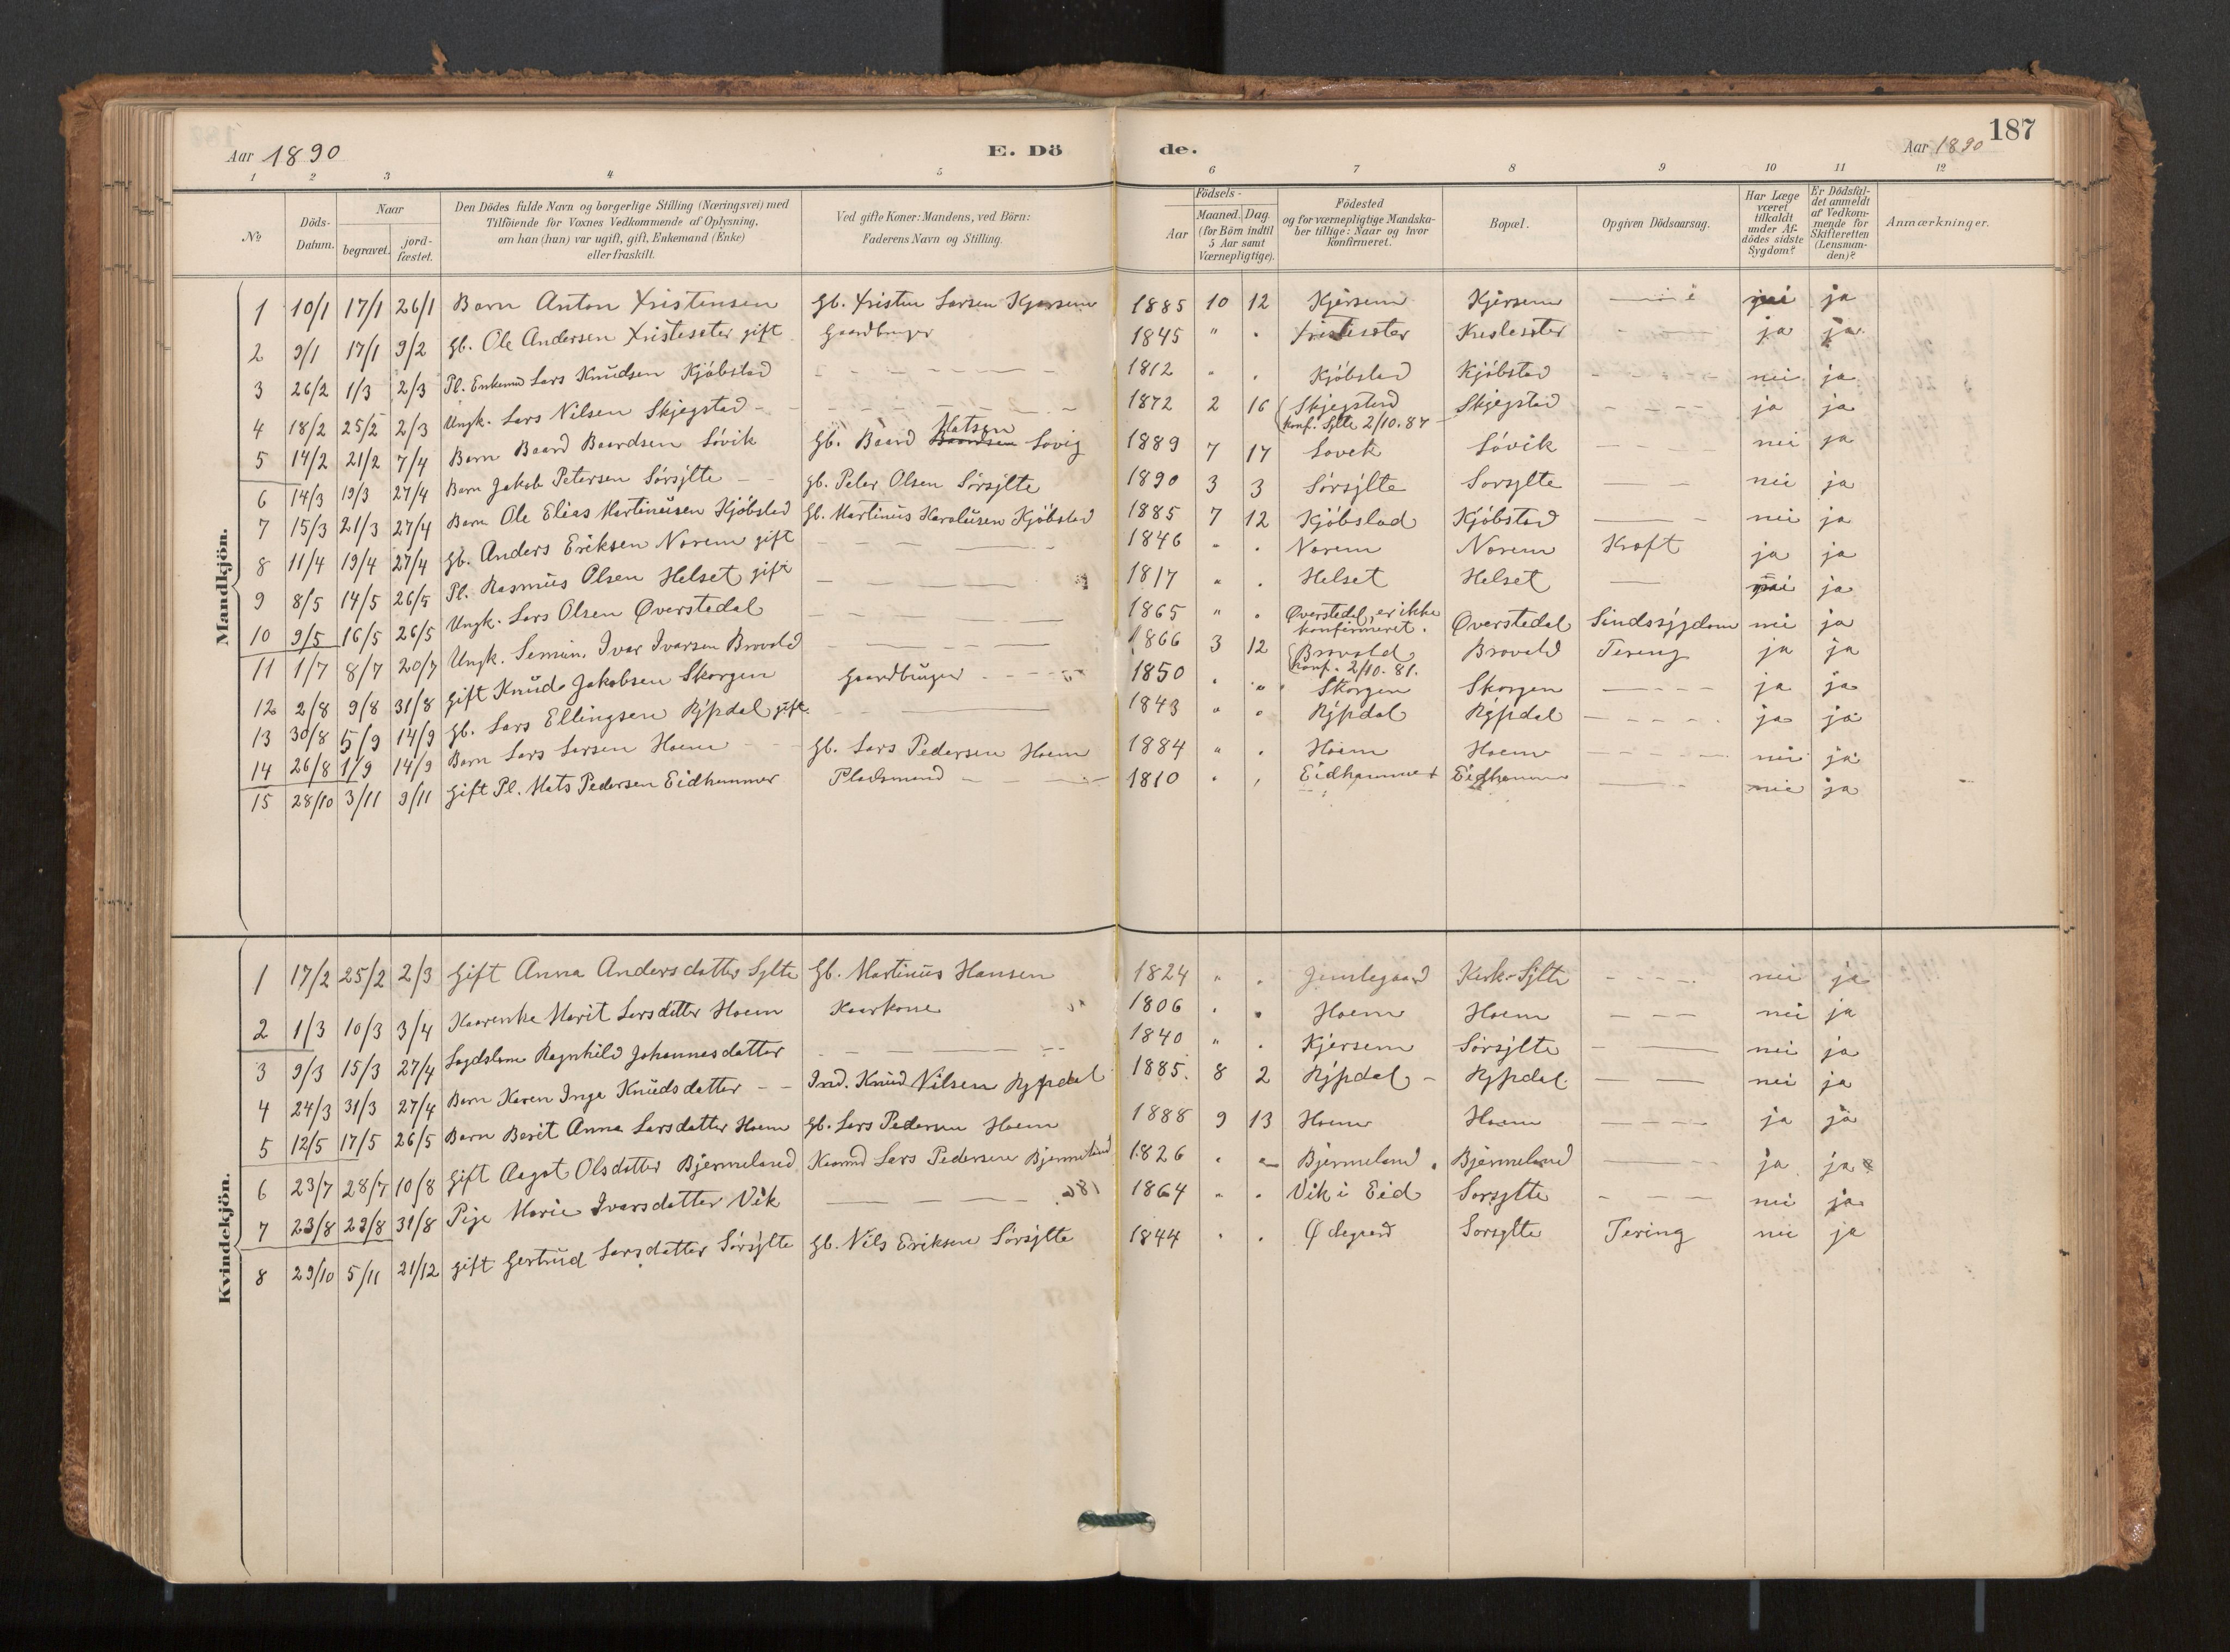 187
Aar 1890 E. Dö de. Aar 1890
1 2 3 4 5 6 7 8 9 10 11 12
No Döds-Datum. Naar begravet. jord-fæstet. Den Dödes fulde Navn og borgerlige Stilling (Næringsvei) med Tilföiende for Voxnes Vedkommende af Oplysning, om han (hun) var ugift, gift, Enkemand (Enke) eller fraskilt. Ved gifte Koner: Mandens, ved Börn: Faderens Navn og Stilling. Födsels- Aar Maaned. Dag. (for Börn indtil 5 Aar samt Værnepligtige). Födested og for værnepligtige Mandskaber tillige: Naar og hvor Konfirmeret. Bopæl. Opgiven Dödsaarsag. Har Læge været tilkaldt under Afdödes sidste Sygdom? Er Dödsfaldet anmeldt af Vedkommende for Skifteretten (Lensmanden)? Anmærkninger.
Mandkjön.
1 10/1 17/1 26/1 Barn Anton Xristensen Gb. Xristen Larsen Kjersem 1885 10 12 Kjersem Kjersem — nei ja
2 9/1 17/1 9/2 Gb. Ole Andersen Xristesæter gift Gaardbruger 1845 " . Xristesæter Kristesæter — ja ja
3 26/2 1/3 2/3 Pl. Enkemd Lars Knudsen Kjöbstad — 1812 " . Kjöbstad Kjöbstad — nei ja
4 18/2 25/2 2/3 Ungk. Lars Nilsen Skjegstad — 1872 2 16 Skjegstad Konf. Sylte 2/10.87 Skjegstad — ja ja
5 14/2 21/2 7/4 Barn Baard Baardsen Lövik Gb. Baard Baardsen Matsen Lovig 1889 7 17 Lovik Lövik — nei ja
6 14/3 19/3 27/4 Barn Jakob Petersen Sörsylte — Gb. Peter Olsen Sörsylte 1890 3 3 Sörsylte Sorsylte — nei ja
7 15/3 21/3 27/4 Barn Ole Elias Martinusen Kjöbstad Gb. Martinus Haraldsen Kjöbstad 1885 7 12 Kjöbstad Kjöbstad — nei ja
8 11/4 19/4 27/4 Gb. Anders Eriksen Norem gift — 1846 " . Norem Norem Kræft ja ja
9 8/5 14/5 26/5 Pl. Rasmus Olsen Helset gift — 1817 " . Helset Helset — nei ja
10 9/5 16/5 26/5 Ungk. Lars Olsen Överstedal — 1865 " . Øverstedal, er ikke konfirmeret. Øverstedal Sindssygdom nei ja
11 1/7 8/7 20/7 Ungk. Semin. Ivar Ivarsen Brovold — 1866 3 12 Brovold Konf. 2/10.81. Brovold Tering ja ja
12 2/8 9/8 31/8 Gift Knud Jakobsen Skorgen Gaardbruger — 1850 . " Skorgen Skorgen — ja ja
13 30/8 5/9 14/9 Gb. Lars Ellingsen Rypdal gift. — 1843 " . Rypdal Rypdal — ja ja
14 26/8 1/9 14/9 Barn Lars Larsen Hoem — Gb. Lars Pedersen Hoem 1884 " . Hoem Hoem — nei ja
15 28/10 3/11 9/11 Gift Pl. Mats Pedersen Eidhammer Pladsmand — 1810 " . Eidhammer Eidhammer — nei ja
Kvindekjön.
1 17/2 25/2 2/3 Gift Anna Andersdatter Sylte Gb. Martinus Hansen 1824 " . Kirk-Sylte — nei ja
2 1/3 10/3 3/4 Kaarenke Marit Larsdatter Hoem Kaarkone 1806 . . Hoem Hoem — nei ja
3 9/3 15/3 27/4 Lægdslem Ragnhild Johannesdatter — 1840 " . Kjersem Sörsylte — nei ja
4 24/3 31/3 27/4 Barn Karen Inga Knudsdatter — Ind. Knud Nilsen Rypdal 1885. 8 2 Rypdal — Rypdal — nei ja
5 12/5 17/5 26/5 Barn Berit Anna Larsdatter Hoem Gb. Lars Pedersen Hoem 1888 9 13 Hoem Hoem — ja ja
6 23/7 28/7 10/8 Gift Aagot Olsdatter Bjermeland Kaarmd Lars Pedersen Bjermeland 1826 . " Bjermeland. Bjermeland — ja ja
7 23/8 29/8 31/8 Pige Marie Ivarsdatter Vik — 1864 " . Vik i Eid Sorsylte — nei ja
8 29/10 5/11 21/12 gift Gertrud Larsdatter Sörsylte Gb. Nils Eriksen Sörsylte 1844 . . Ødegard Sorsylte Tering nei ja